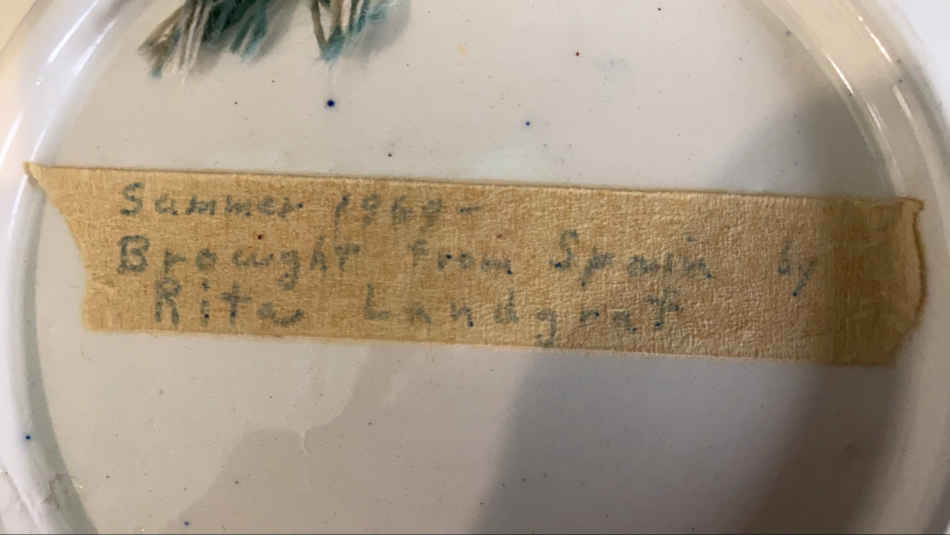 Summer 1969-
Brought from Spain by
Rita Landgraf